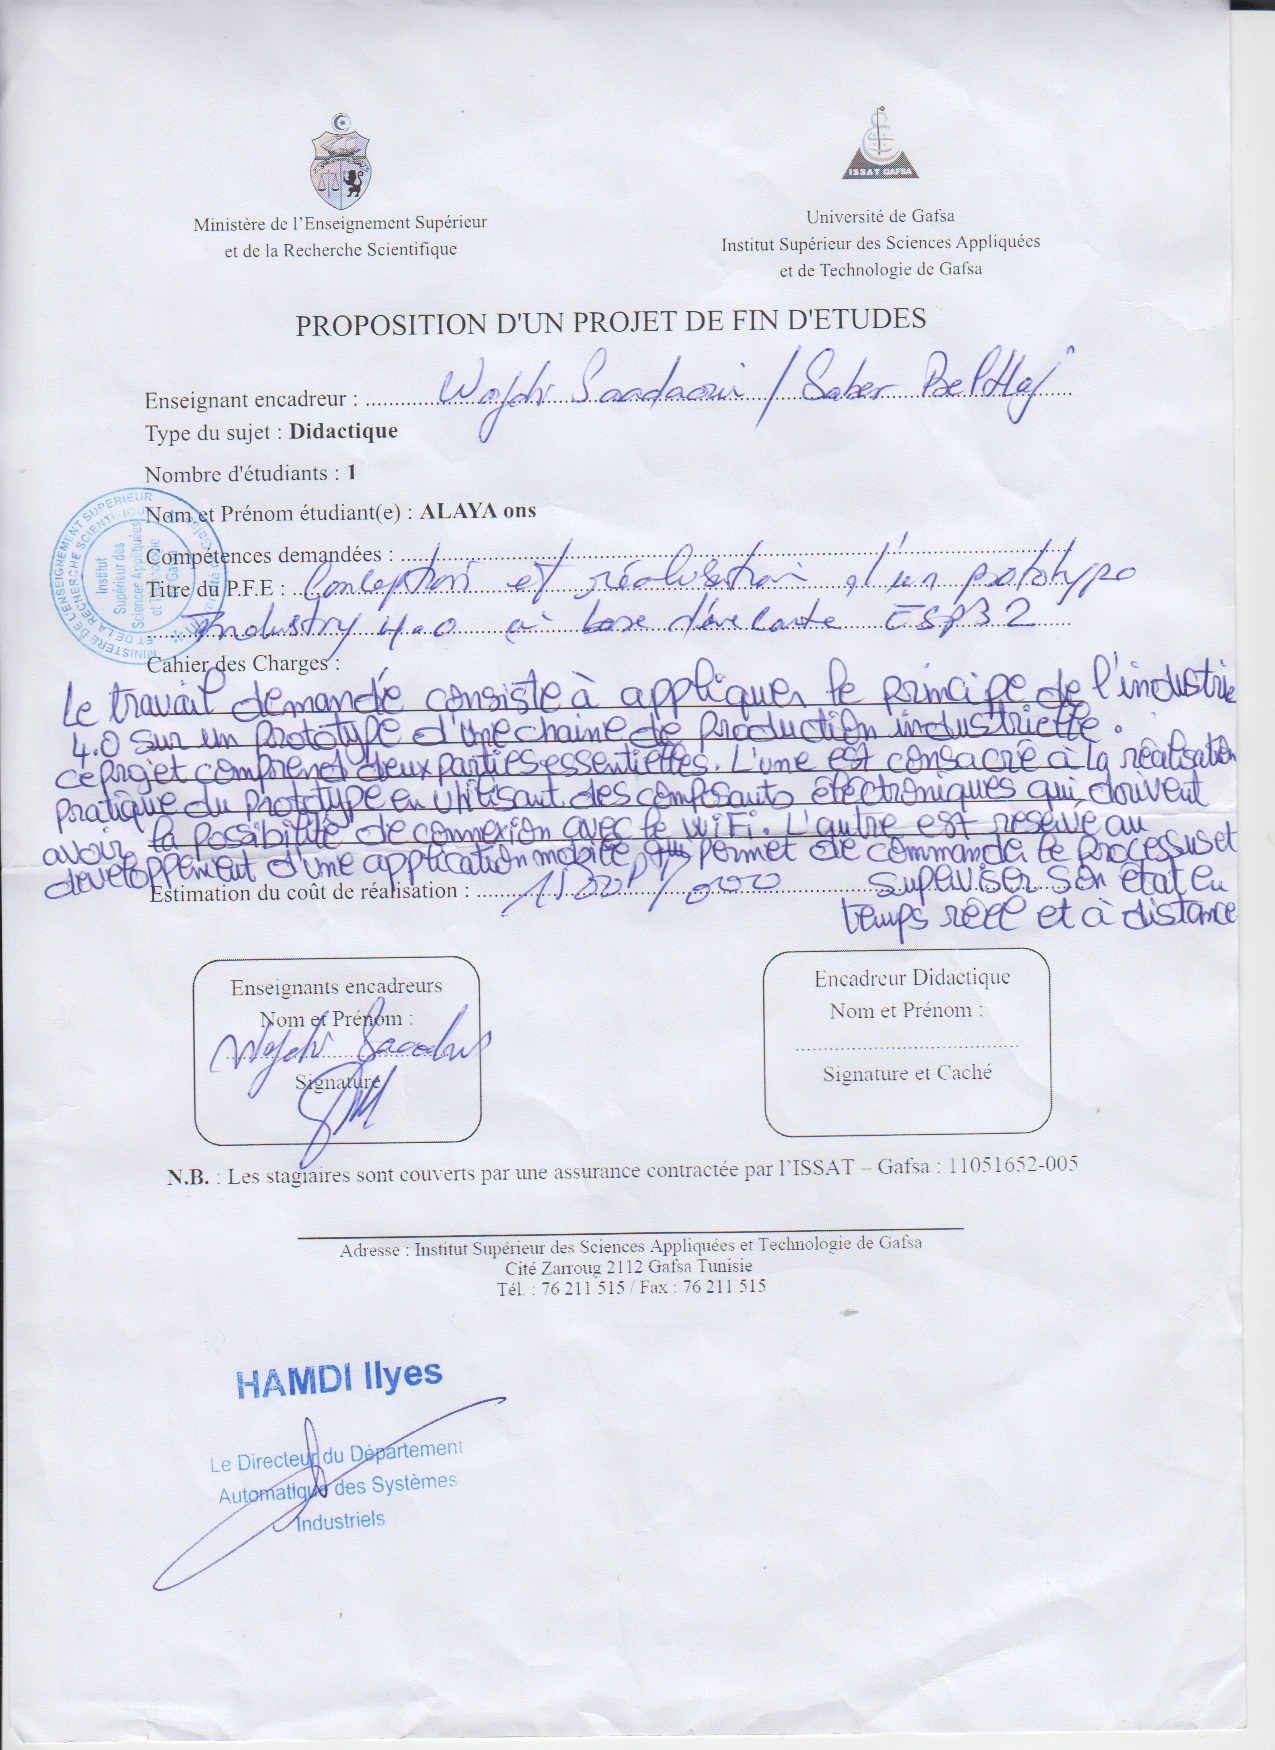 ISSAT GAFSA
Ministère de l'Enseignement Supérieur
et de la Recherche Scientifique
Université de Gafsa
Institut Supérieur des Sciences Appliquées
et de Technologie de Gafsa
PROPOSITION D'UN PROJET DE FIN D'ETUDES
Enseignant encadreur : Wajdi Saadaoui / Saber BelHaj
Type du sujet : Didactique
Nombre d'étudiants : 1
Nom et Prénom étudiant(e) : ALAYA ons
Compétences demandées :
Titre du P.F.E : Conception et réalisation d'un prototype
Industry 4.0 à base d'une carte ESP32
Cahier des Charges :
Le travail demandé consiste à appliquer le principe de l'industrie
4.0 sur un prototype d'une chaine de production industrielle.
ce projet comprend deux parties essentielles. L'une est consacré à la réalisation
pratique du prototype en utilisant des composants électroniques qui doivent
avoir la possibilité de connexion avec le WiFi. L'autre est reservé au
développement d'une application mobile qui permet de commander le processus et
superviser son état en
temps réel et à distance
Estimation du coût de réalisation :
Enseignants encadreurs
Nom et Prénom :
Wajdi
Signature
Encadreur Didactique
Nom et Prénom :
Signature et Caché
N.B. : Les stagiaires sont couverts par une assurance contractée par l'ISSAT – Gafsa : 11051652-005
Adresse : Institut Supérieur des Sciences Appliquées et Technologie de Gafsa
Cité Zarroug 2112 Gafsa Tunisie
Tél. : 76 211 515 / Fax : 76 211 515
HAMDI Ilyes
Le Directeur du Département
Automatique des Systèmes
Industriels
MINISTERE DE L'ENSEIGNEMENT SUPERIEUR
ET DE LA RECHERCHE SCIENTIFIQUE
Institut
Supérieur des
Sciences Appliquées